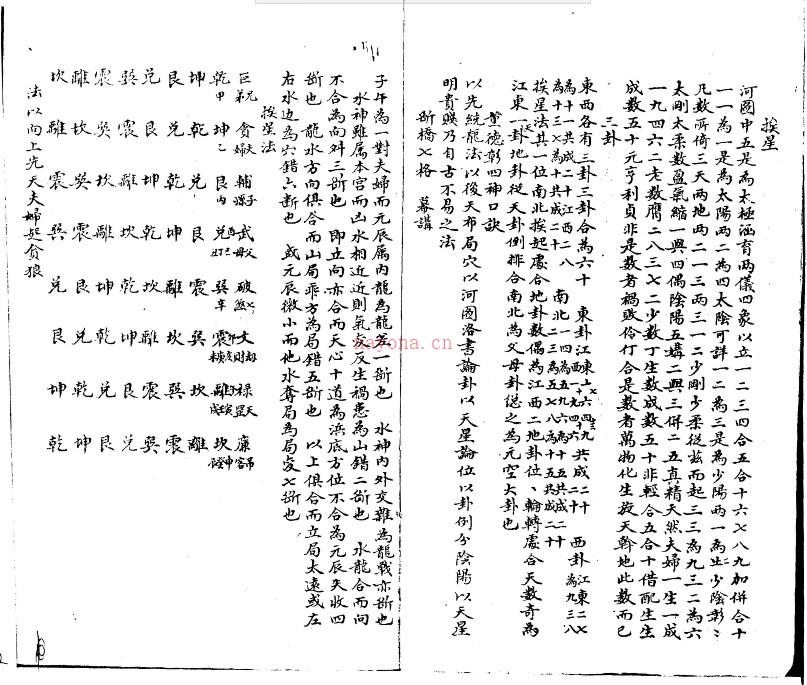 挨星
河圖中五是為太極涵育兩儀四象以立一二三四合五合十六七八九加併合十
一一為一是為太陽兩二為四太陰可詳一二為三是為少陽兩一為二少陰彰彰
凡數所倚三天兩地兩二一三兩三一二少剛少柔從茲而起三三為九三二為六
太剛太柔數盈氣縮一與四偶陰陽五媾二與三併二五真精天然夫婦一生一成
一九四六二老數膺二八三七二少數丁生數成數五十非輕合五合十借配生生
成數五十元亨利貞非是數者禍敗伶仃合是數者萬物化生旋天斡地此數而已
三卦
東西各有三卦三卦合為六十
挨星法其一位南北挨起處合地卦數偶為江西二地卦位八輪轉處合天數奇為
江東一卦地卦從天卦倒排合南北為父母卦總之為元空大卦也
董德彰四神口訣
以先統龍法以後天布局穴以河圖洛書論卦以天星論位以卦例分陰陽以天星
明貴賤乃自古不易之法
斷橋七格 幕講
子午為一對夫婦而元辰屬內龍為龍差一斷也 水神內外交雜為龍戰亦斷也
水神雖屬本宮而凶水相近近則氣貞反生禍患為山錯二斷也 水龍合而向
不合為向舛三斷也 即立向亦合而天心十道為浜底方位不合為元辰失收四
斷也 龍水方向俱合而山局乖方為局錯五斷也 以上俱合而立局太遠或左
右水边為六錯六斷也 或元辰微小而他水奪局為局变七斷也
挨星法
巨 貪 輔 武 破 文 祿 廉
乾甲 坤乙 艮丙 兌 巽辛 震 離 坎
坤 乾 兌 艮 震 巽 坎 離
艮 兌 乾 坤 離 坎 巽 震
兌 艮 坤 乾 坎 離 震 巽
巽 震 離 坎 乾 坤 艮 兌
震 巽 坎 離 坤 乾 兌 艮
離 坎 巽 震 艮 兌 乾 坤
坎 離 震 巽 兌 艮 坤 乾
法以向上先天夫婦起貪狼
hayona.cn